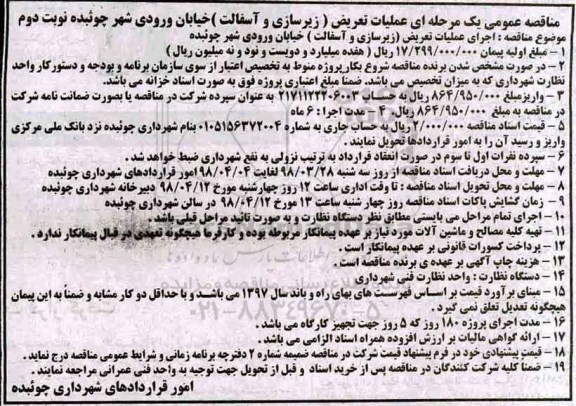 مناقصه عمومی یک مرحله ای عملیات تعریض ( زیرسازی و آسفالت )خیابان ورودی شهر چوئبده نوبت دوم
موضوع مناقصه : اجرای عملیات تعریض (زیرسازی و آسفالت ) خیابان ورودی شهر چوئبده
۱ – مبلغ اولیه پیمان ۱۷/۲۹۹/۰۰۰/۰۰۰ ریال ( هفده میلیارد و دویست و نود و نه میلیون ریال )
۲ – در صورت مشخص شدن برنده مناقصه شروع بکارپروژه منوط به تخصیص اعتبار از سوی سازمان برنامه و بودجه و دستورکار واحد
نظارت شهرداری که به میزان تخصیص می باشد. ضمناً مبلغ اعتباری پروژه فوق به صورت اسناد خزانه می باشد.
۳ – واریزمبلغ ۸۶۴/۹۵۰/۰۰۰ ریال به حساب ۲۱۷۱۱۲۲۲۰۶۰۰۳ به عنوان سپرده شرکت در مناقصه یا بصورت ضمانت نامه شرکت
در مناقصه به مبلغ ۸۶۴/۹۵۰/۰۰۰ ریال. ۴ – مدت اجرا : ۶ ماه
۵ – قیمت اسناد مناقصه ۲/۰۰۰/۰۰۰ ریال به حساب جاری به شماره ۰۱۰۵۱۵۶۳۷۲۰۰۴ بنام شهرداری چوئبده نزد بانک ملی مرکزی
واریز و رسید آن را به امور قراردادها تحویل نمایند .
۶ – سپرده نفرات اول تا سوم در صورت انعقاد قرارداد به ترتیب نزولی به نفع شهرداری ضبط خواهد شد .
۷ – مهلت و محل دریافت اسناد مناقصه از روز سه شنبه ۹۸/۰۳/۲۸ لغایت ۹۸/۰۴/۰۴ امور قراردادهای شهرداری چوئبده
۸ – مهلت و محل تحویل اسناد مناقصه : تا وقت اداری ساعت ۱۲ روز چهارشنبه مورخ ۹۸/۰۴/۱۲ دبیرخانه شهرداری چوئبده
۹ – زمان گشایش پاکات اسناد مناقصه روز چهار شنبه ساعت ۱۳ مورخ ۹۸/۰۴/۱۲ در سالن شهرداری چوئبده
۱۰ – اجرای تمام مراحل می بایستی مطابق نظر دستگاه نظارت و به صورت تائید مراحل قبلی باشد .
۱۱ – تهیه کلیه مصالح و ماشین آلات مورد نیاز بر عهده پیمانکار مربوطه بوده و کارفرما هیچگونه تعهدی در قبال پیمانکار ندارد .
۱۲ – پرداخت کسورات قانونی بر عهده پیمانکار است .
۱۳ – هزینه چاپ آگهی بر عهده ی برنده مناقصه است .
۱۴ – دستگاه نظارت : واحد نظارت فنی شهرداری
۱۵ – مبنای برآورد قیمت بر اساس فهرست های بهای راه و باند سال ۱۳۹۷ می باشد و با حداقل دو کار مشابه و ضمناً به این پیمان
هیچگونه تعدیل تعلق نمی گیرد .
۱۶ – مدت اجرای پروژه ۱۸۰ روز که ۵ روز جهت تجهیز کارگاه می باشد .
۱۷ – ارائه گواهی مالیات بر ارزش افزوده همراه اسناد الزامی می باشد.
۱۸ – قیمت پیشنهادی خود در فرم پیشنهاد قیمت شرکت در مناقصه ضمیمه شماره ۲ دفترچه برنامه زمانی و شرایط عمومی مناقصه درج نماید .
۱۹ – ضمناً کلیه شرکت کنندگان در مناقصه پس از خرید اسناد و قبل از تحویل جهت توجیه به واحد فنی عمرانی مراجعه نمایند .
امور قراردادهای شهرداری چوئبده
۰۲۱-۸۸۳۴۹۶۷۰-۵